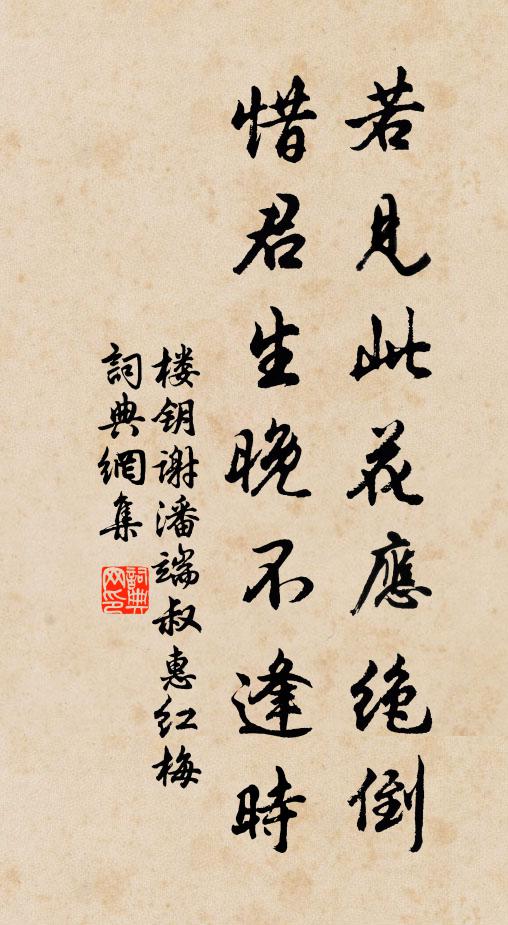 若見此花應绝倒
惜君生晚不逢時
楼钥谢潘端叔惠红梅
詞典網集
詞典网印